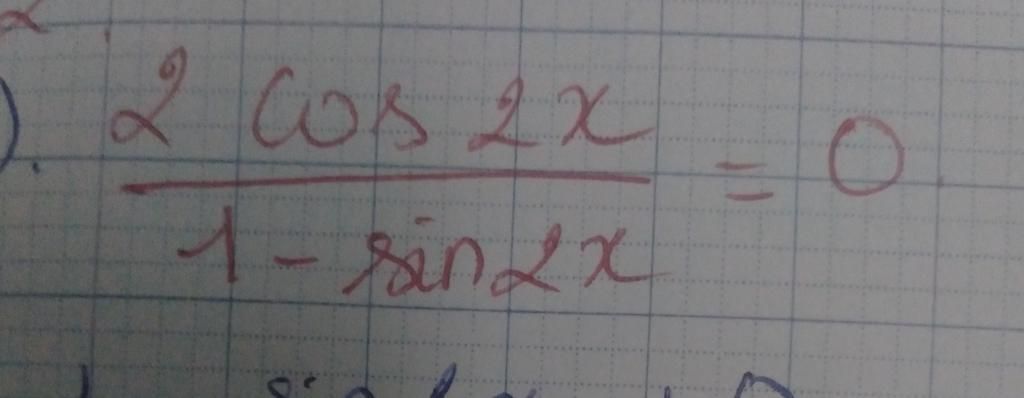 2 cos 2x
1 - sin2x
= 0